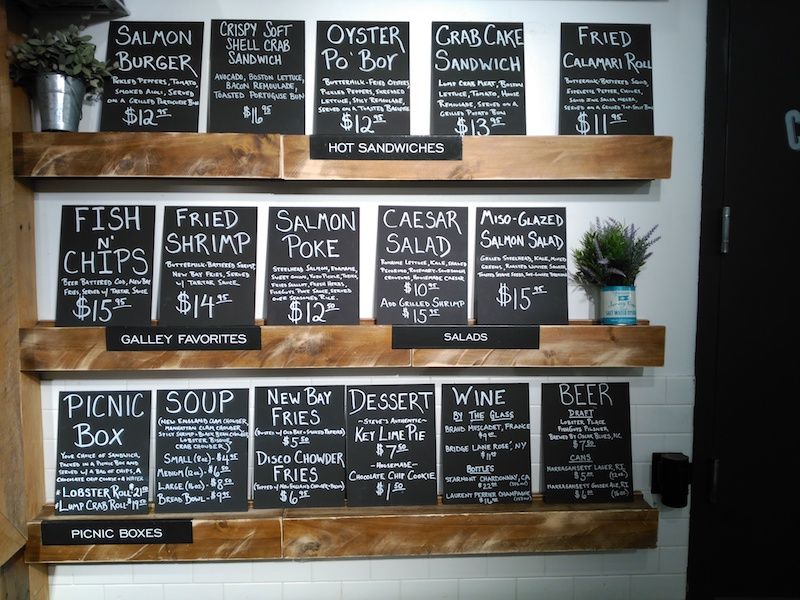 SALMON
BURGER
PICKLED PEPPERS, TOMATO
SMOKED AIOLI, SERVED
ON A GRILLED PORTUGUESE BUN
$12.95
CRISPY SOFT
SHELL CRAB
SANDWICH
AVOCADO, BOSTON LETTUCE,
BACON REMOULADE,
TOASTED PORTUGUESE BUN
$16.95
OYSTER
PO' BOY
BUTTERMILK-FRIED OYSTERS
PICKLED PEPPERS, SHREDDED
LETTUCE, SPICY REMOULADE,
SERVED ON A TOASTED BAGUETTE
$12.95
CRAB CAKE
SANDWICH
LUMP CRAB MEAT, BOSTON
LETTUCE, TOMATO, HOUSE
REMOULADE, SERVED ON A
GRILLED POTATO BUN
$13.95
FRIED
CALAMARI ROLL
BUTTERMILK-BATTERED SQUID,
SERVED ON A GRILLED TOP-SPLIT BUN
$11.95
HOT SANDWICHES
FISH
N'
CHIPS
BEER BATTERED COD, NEW BAY
FRIES, SERVED W/ TARTAR SAUCE
$15.95
FRIED
SHRIMP
BUTTERMILK-BATTERED SHRIMP,
NEW BAY FRIES, SERVED
W/ TARTAR SAUCE
$14.95
SALMON
POKE
STEELHEAD SALMON, EDAMAME,
SWEET ONION, YUZU PICKLE, TOBIKO,
FRIED SHALLOT, FRESH HERBS,
FISHGUYS POKE SAUCE, SERVED
OVER SEASONED RICE
$12.50
CAESAR
SALAD
ROMAINE LETTUCE, KALE, SHAVED
PECORINO, ROSEMARY-SOURDOUGH
CROUTONS, HOUSEMADE CAESAR
$10.95
ADD GRILLED SHRIMP
$15.95
MISO-GLAZED
SALMON SALAD
GRILLED STEELHEAD, KALE, MIXED
GREENS, ROASTED WINTER SQUASH,
$15.95
GALLEY FAVORITES
SALADS
PICNIC
BOX
YOUR CHOICE OF SANDWICH,
PACKED IN A PICNIC BOX AND
SERVED W/ A BAG OF CHIPS, A
CHOCOLATE CHIP COOKIE & WATER
LOBSTER ROLL - $21.00
LUMP CRAB ROLL - $19.50
SOUP
(NEW ENGLAND CLAM CHOWDER,
MANHATTAN CLAM CHOWDER,
SPICY SHRIMP & BLACK BEAN CHOWDER,
LOBSTER BISQUE,
CRAB CHOWDER)
SMALL (8oz) - $4.95
MEDIUM (12oz) - $6.50
LARGE (16oz) - $8.50
BREAD BOWL - $9.95
NEW BAY
FRIES
(DUSTED W/ OLD BAY & SMOKED PAPRIKA)
$5.50
DISCO CHOWDER
FRIES
(TOPPED W/ NEW ENGLAND CHOWDER & BACON)
$6.95
DESSERT
~STEVE'S AUTHENTIC~
KEY LIME PIE
$7.50
~HOUSEMADE~
CHOCOLATE CHIP COOKIE
$1.50
WINE
BY THE GLASS
BRAND MUSCADET, FRANCE
BRIDGE LANE ROSÉ, NY
BOTTLES
STARMONT CHARDONNAY, CA
LAURENT PERRIER CHAMPAGNE
BEER
DRAFT
LOBSTER PLACE
FISHGUYS PILSNER
BREWED BY OSKAR BLUES, NC
$7.00
CANS
NARRAGANSETT LAGER, RI
$5.00 (12oz)
NARRAGANSETT GOLDEN ALE, RI
$6.00 (16oz)
PICNIC BOXES